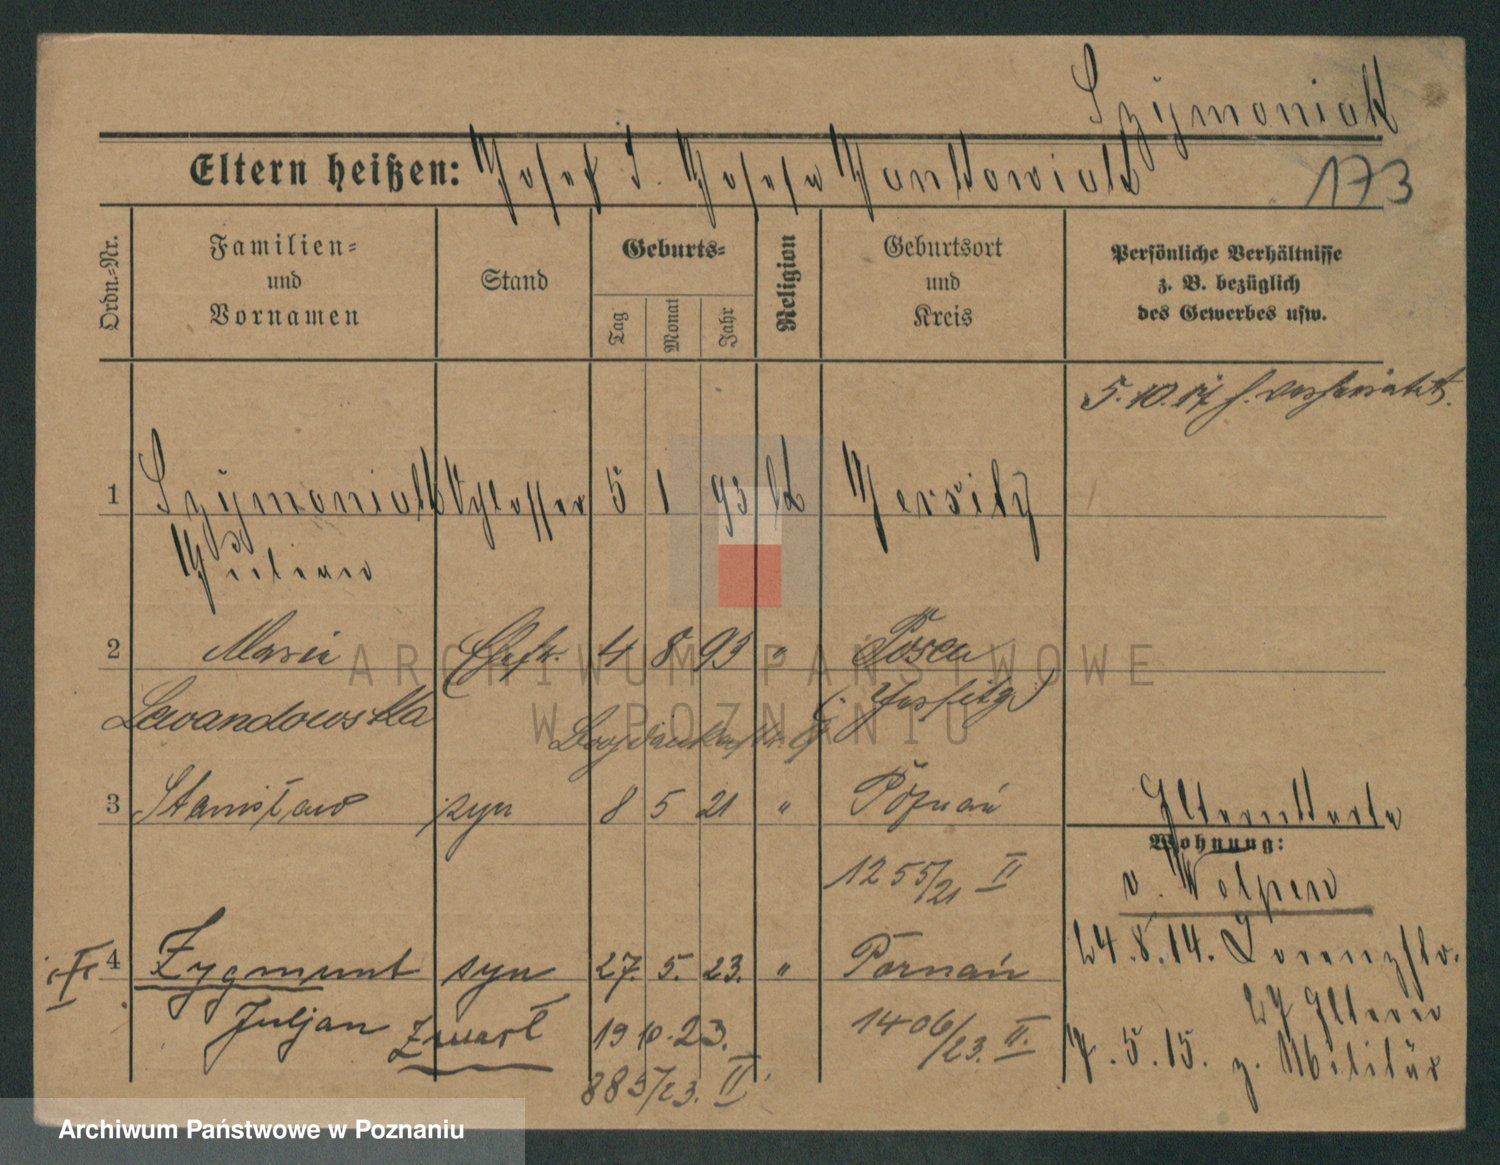 Szymoniak
Eltern heißen: Josef S. Josefa Jankowiak
173
Ordn.-Nr.
Familien-
und
Vornamen
Stand
Geburts-
Tag
Monat
Jahr
Religion
Geburtsort
und
Kreis
Persönliche Verhältnisse
z. B. bezüglich
des Gewerbes usw.
5. 10. 17 h. verheiratet.
1 Szymoniak Schlosser 5 1 93 k Jersitz
Julian
2 Maria Ehefr. 4 8 93 " Posen
Lewandowska
(Jersitz)
3 Stanisław syn 8 5 21 " Poznań
Elternkarte
Wohnung:
1255/21 II
4 Zygmunt syn 27. 5. 23. " Poznań
24.8.14. Lorenzstr.
27 Eltern
Juljan zmarł 19 10. 23.
1406/23. II.
7.5.15. z. Militär
885/23. II.
ARCHIWUM PAŃSTWOWE
W POZNANIU
Archiwum Państwowe w Poznaniu